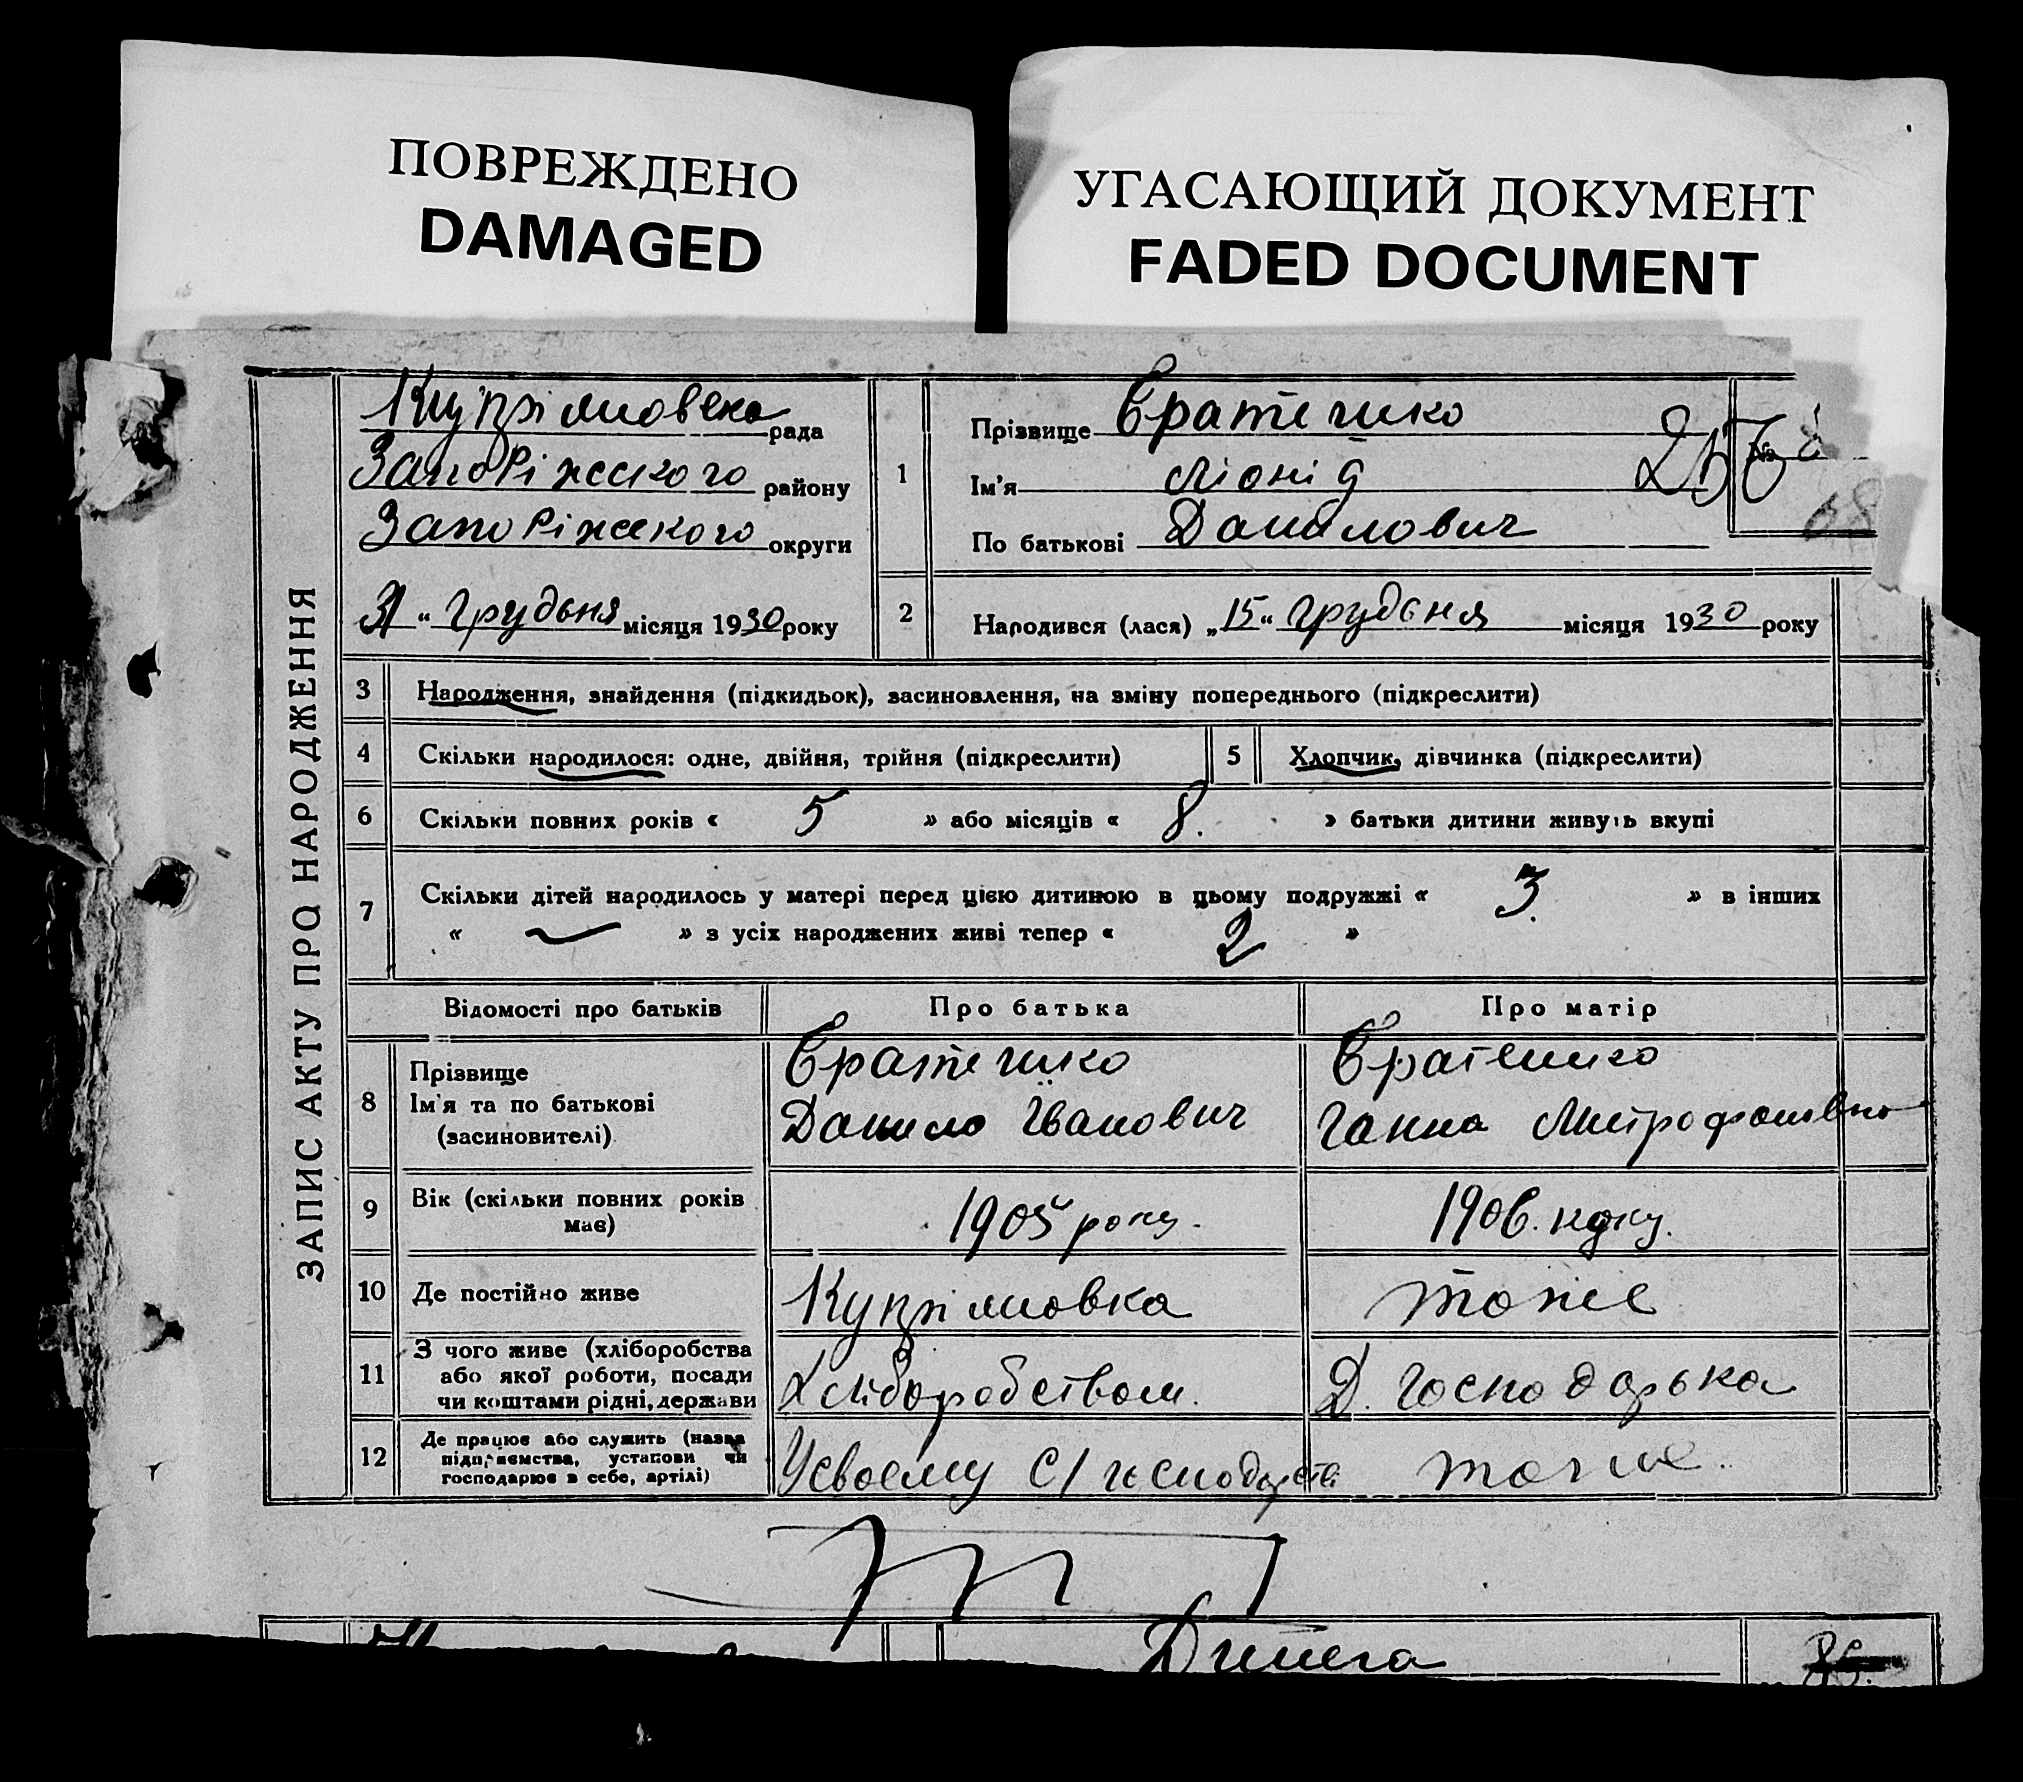 ПОВРЕЖДЕНО
DAMAGED
УГАСАЮЩИЙ ДОКУМЕНТ
FADED DOCUMENT
ЗАПИС АКТУ ПРО НАРОДЖЕННЯ
рада
Запоріжського району
Запоріжського округи
31 „ Грудьня місяця 1930 року
1
Прізвище Братенико
Ім'я Ліонід
По батькові Данилович
2
Народився (лася) „15“ Грудьня місяця 1930 року
3 Народження, знайдення (підкидьок), засиновлення, на зміну попереднього (підкреслити)
4 Скільки народилося: одне, двійня, трійня (підкреслити)
5 Хлопчик, дівчинка (підкреслити)
6 Скільки повних років « 5 » або місяців « 8. » батьки дитини живуть вкупі
7 Скільки дітей народилось у матері перед цією дитиною в цьому подружжі « 3. » в інших
« — » з усіх народжених живі тепер « 2 »
Відомості про батьків Про батька Про матір
8 Прізвище
Ім'я та по батькові
(засиновителі)
Данило Іванович
Ганна Митрофанівна
9 Вік (скільки повних років
має)
1905 року.
1906.
10 Де постійно живе
тоже
11 З чого живе (хліборобства
або якої роботи, посади
чи коштами рідні, держави
Хліборобством.
Д. Господарька
12 Де працює або служить (назва
підприємства, установи чи
господарює в себе, артілі)
Усвоему С/господарстві
тоже.